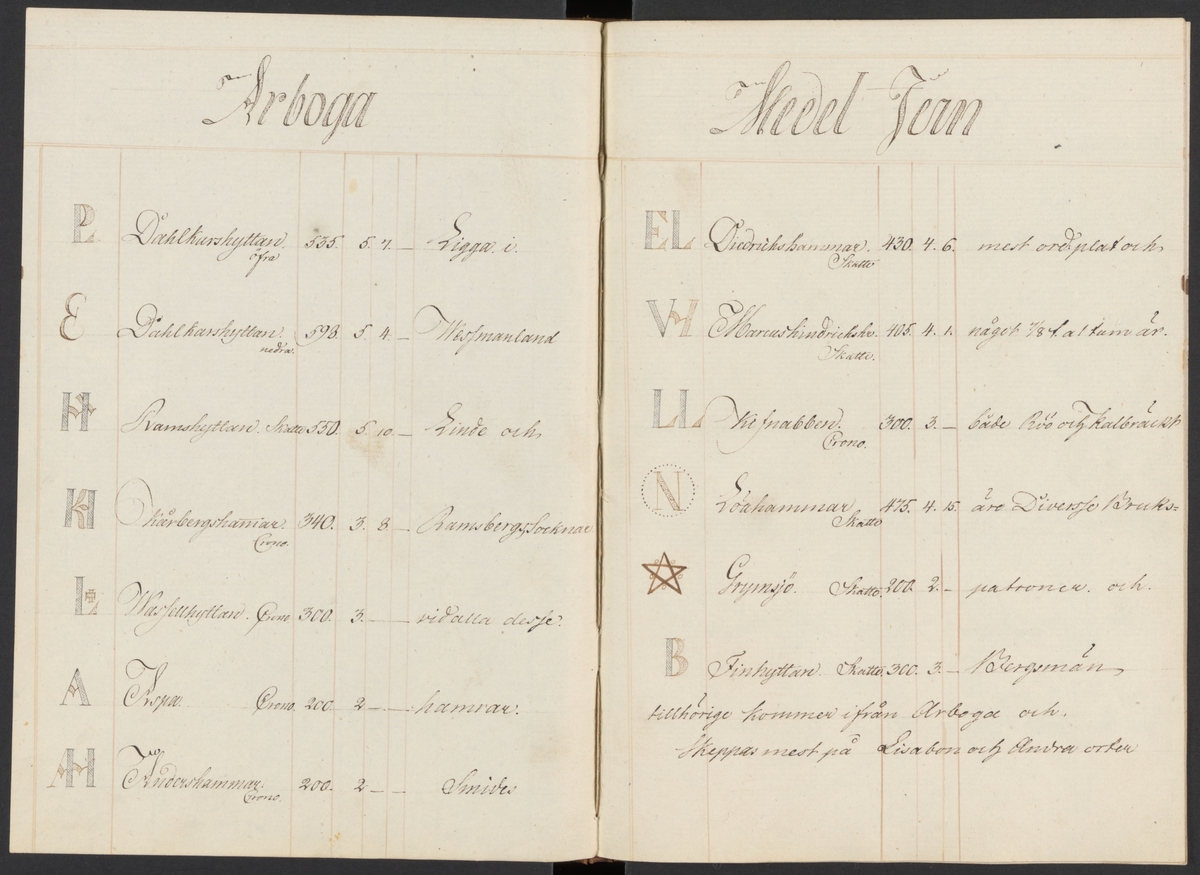 Arboga
P Dahlkarshyttan. 535. 5. 7. — Ligga i.
öfra
E Dahlkarshyttan 593. 5. 4. — Wessmanland
nedra.
H Ramshyttan. Skatte 550. 5. 10. — Linde och
H Skårbergshamar. 340. 3. 8 — Ramsbergs Socknar
Crono.
L Wasselhyttan. Crono. 300. 3. — — vid alla desse.
A Aspa. Crono. 200. 2 — — hamrar.
AH Andershammar. 200. 2 — — Smides
Crono.
Medel Jern
EL Diedrichshammar. 430. 4. 6. mest ord. plat och
Skatte
VH Marcushindrichshr. 405. 4. 1. något 7/8 t. al tum är.
Skatte.
LL Kefnabben. 300. 3. — både Röö och kalbräckt
Crono.
N Löahammar 475. 4. 15. äro Diversse Bruks=
Skatte
Grymsjö Skatte. 200. 2. — patroner. och.
B Finhyttan Skatte. 300. 3. — Bergsmän
tillhörige kommer ifrån Arboga och.
Skeppas mest på Lisabon och Andra orter